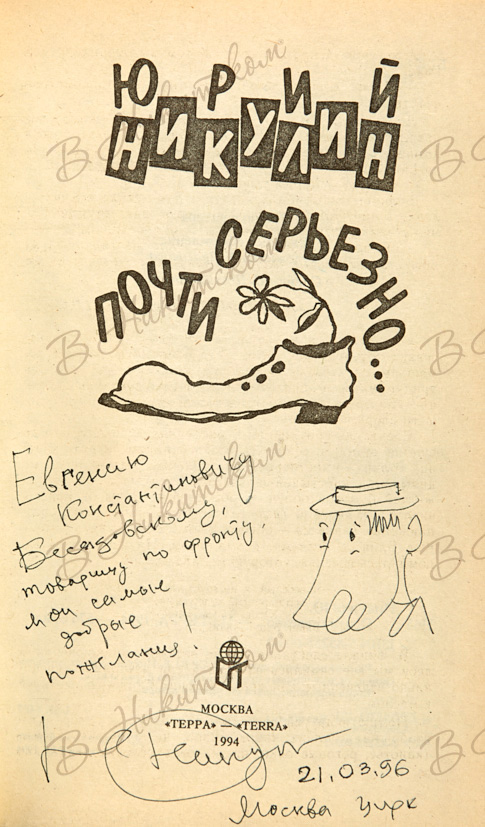 ЮРИЙ
НИКУЛИН
ПОЧТИ СЕРЬЕЗНО...
Евгению
Константиновичу
Беседовскому,
товарищу по фронту,
мои самые
добрые
пожелания!
МОСКВА
«ТЕРРА» — «TERRA»
1994
Никулин
21.03.96
Москва Цирк
В Никитском